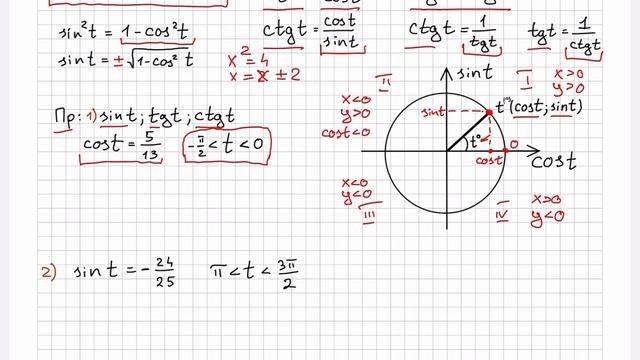 sin²t = 1-cos²t
sint = ±√1-cos²t
x² = 4
x = 2 ±2
ctgt = cost/sint
ctgt = 1/tgt
tgt = 1/ctgt
Пр: 1) sint; tgt; ctgt
cost = 5/13
-π/2 < t < 0
II
x<0
y>0
cost<0
sint
I
x>0
y>0
sint
t°(cost; sint)
t°
cost
0
cost
x<0
y<0
III
IV
x>0
y<0
2) sint = -24/25
π < t < 3π/2